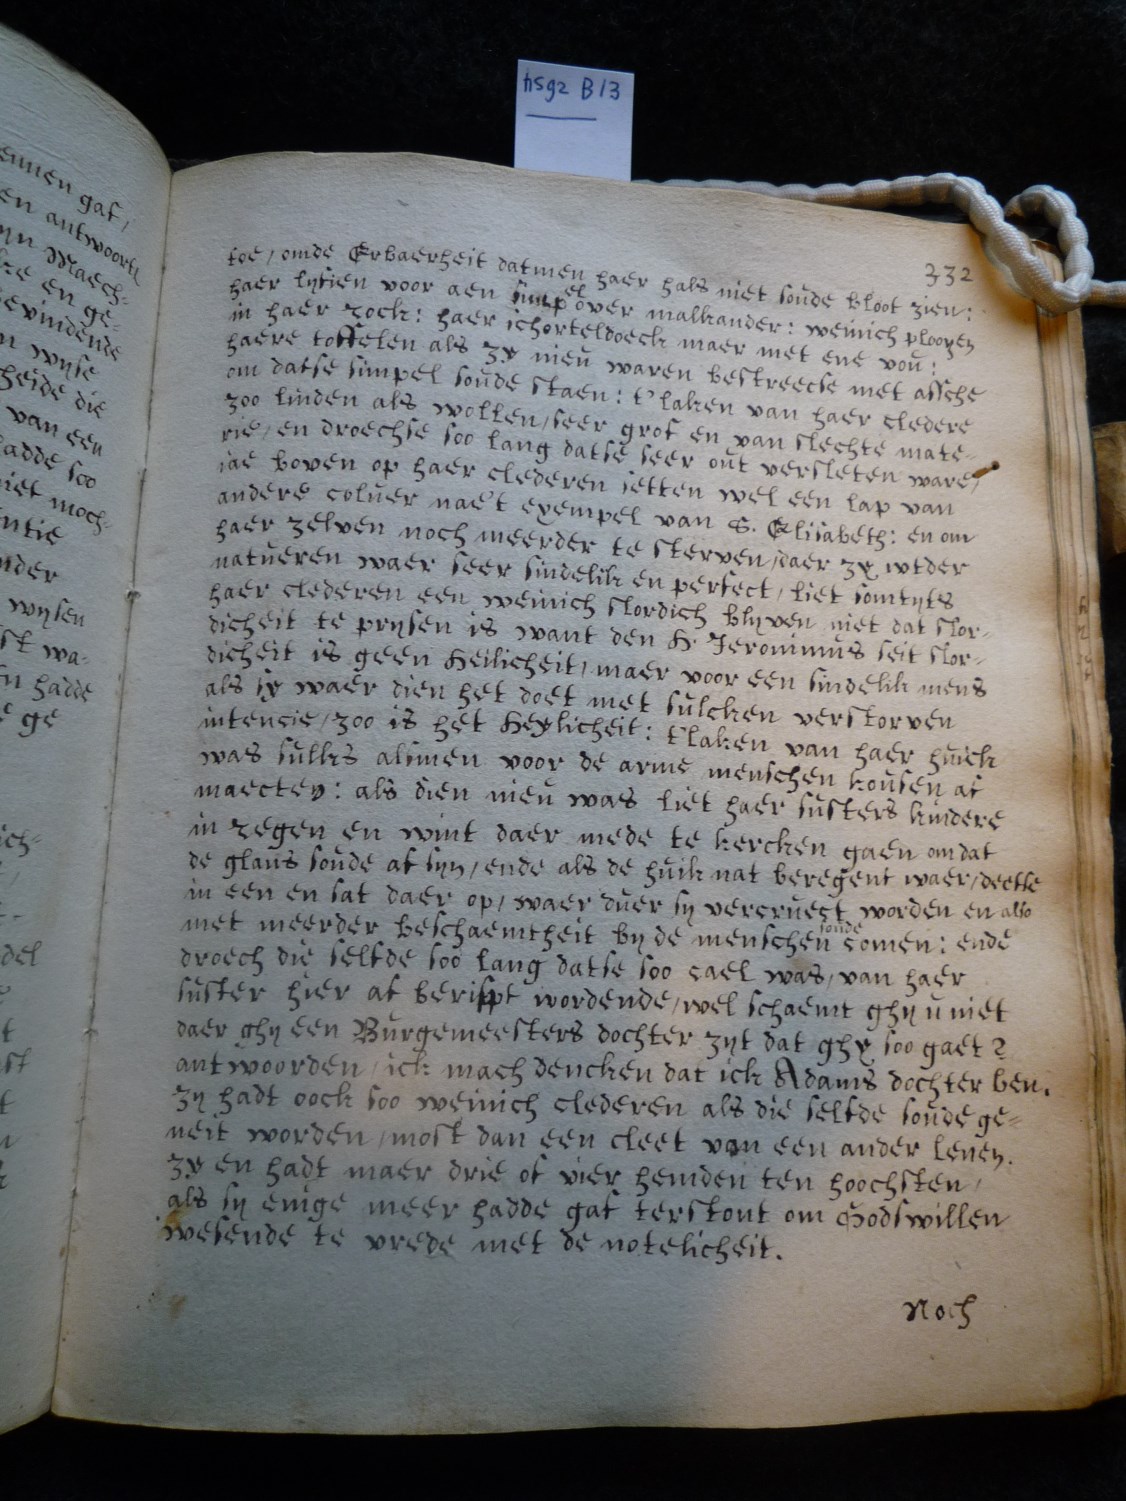 hsg2 B13
332
toe, omde Erbaerheit datmen haer hals niet soude bloot zien:
haer lyfien voor aen simpel over malkander: weinich plooyen
in haer rock: haer schorteldoeck maer met ene vou:
haere toffelen als zy nieu waren bestreecse met assche
om datse simpel soude staen: t'laken van haer cledere
zoo linden als wollen, seer grof en van slechte mate-
rie, en droechse soo lang datse seer out versleten ware,
iae boven op haer clederen setten wel een lap van
andere coluer nae't exempel van S. Elisabeth: en om
haer zelven noch meerder te sterven, daer zy wtder
natueren waer seer sindelik en perfect, liet somtyts
haer clederen een weinich slordich blyven niet dat slor-
dicheit te prysen is want den H. Jeronimus seit slor-
dicheit is geen Heilicheit, maer voor een sindelik mens
als sy waer dien het doet met sulcken verstorven
intencie, zoo is het Heylicheit: t'laken van haer huick
was sulks alsmen voor de arme menschen kousen af
maecten: als dien nieu was liet haer susters kindere
in regen en wint daer mede te kercken gaen omdat
de glans soude af syn, ende als de huik nat beregent waer, deetse
in een en sat daer op, waer duer sy vercruect worden en also
met meerder beschaemtheit by de menschen soude comen: ende
droech die selfde soo lang datse soo cael was, van haer
suster hier af berispt wordende, wel schaemt ghy u niet
daer ghy een Burgemeesters dochter zyt dat ghy soo gaet?
antwoorden, ick mach dencken dat ick Adams dochter ben.
zy hadt oock soo weinich clederen als die selfde soude ge-
neit worden, most dan een cleet van een ander lenen.
zy en hadt maer drie of vier hemden ten hoochsten,
als sy enige meer hadde gaf terstont om Godswillen
wesende te vrede met de notelicheit.
Noch